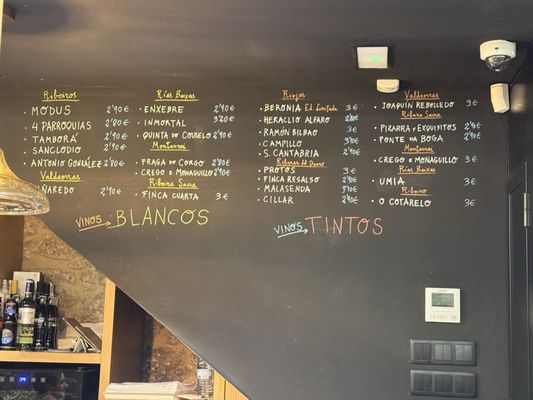 Ribeiros
· MODUS 2'90€
· 4 PARROQUIAS 2'80€
· TAMBORÁ 2'90€
· SANCLODIO 2'90€
· ANTONIO GONZÁLEZ 2'80€
Valdeorras
· ÑAREDO 2'90€
Rías Baixas
· ENXEBRE 2'90€
· INMORTAL 3'20€
· QUINTA DE COUSELO 2'90€
Monterrei
· FRAGA DO CORGO 2'80€
· CREGO e MONAGUILLO 2'90€
Ribeira Sacra
· FINCA CUARTA 3€
VINOS → BLANCOS
Riojas
· BERONIA Ed. Limitada 3€
· HERACLIO ALFARO
· RAMÓN BILBAO 3€
· CAMPILLO
· S. CANTABRIA
Riberas del Duero
· PROTOS 3€
· FINCA RESALSO
· MALASENDA
· CILLAR
VINOS → TINTOS
Valdeorras
· JOAQUÍN REBOLLEDO 3€
Ribeira Sacra
· PIZARRAS y EXQUISITOS
· PONTE DA BOGA
Monterrei
· CREGO e MONAGUILLO 3€
Rías Baixas
· UMIA 3€
Ribeiro
· O COTARELO 3€